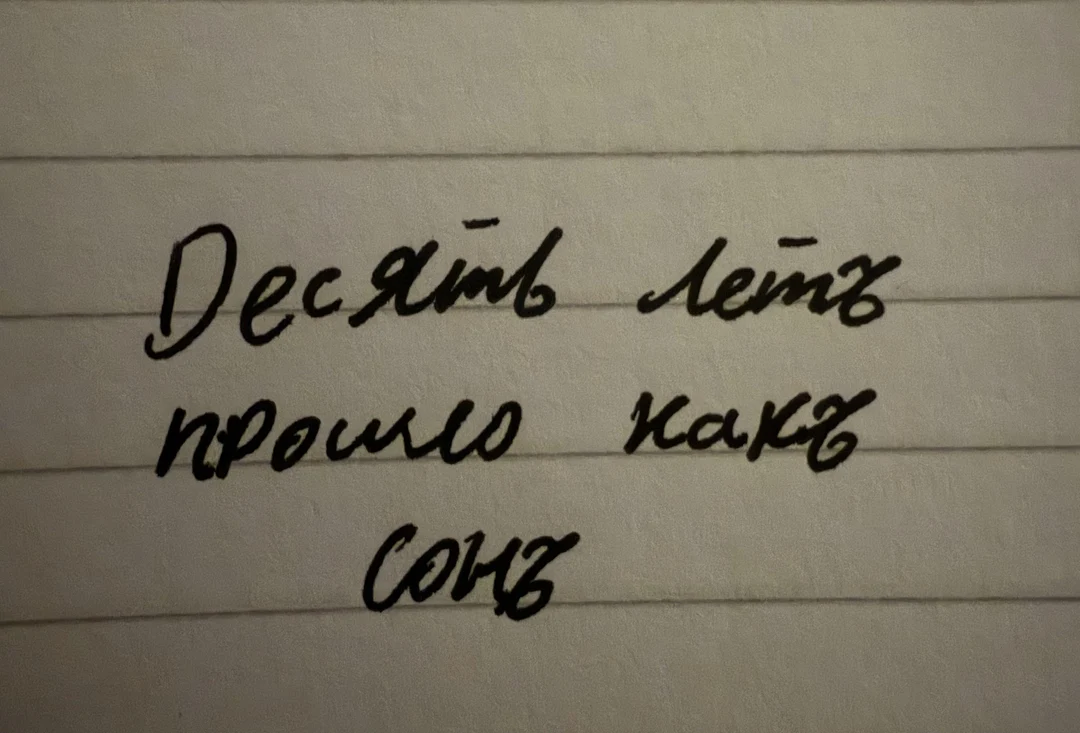 Десять летъ
прошло какъ
сонъ